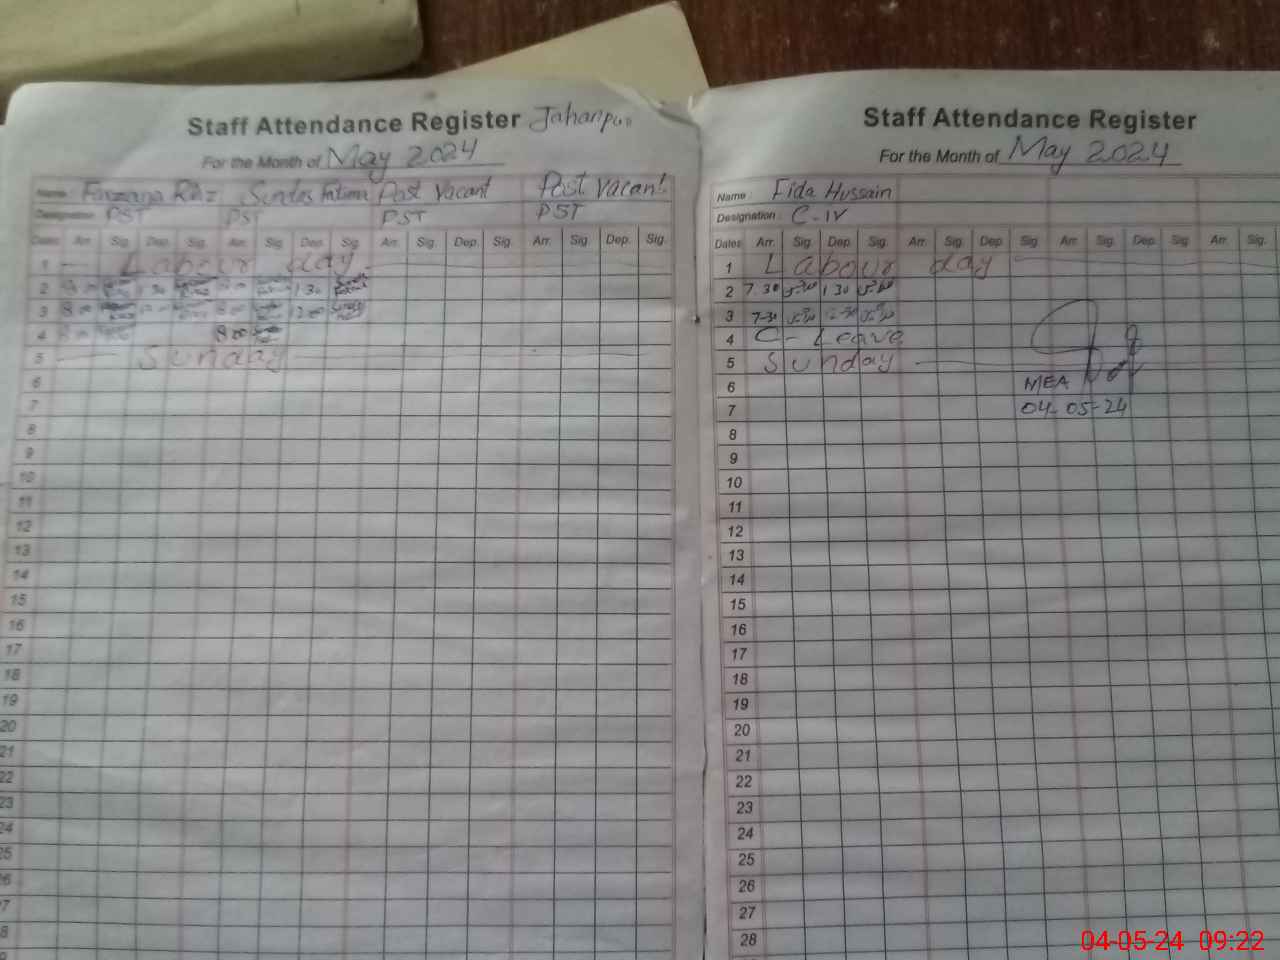 Staff Attendance Register Jahanpur
For the Month of May 2024
Name : Farzana Riaz Sundas Fatima Post Vacant Post Vacant
Designation : PST PST PST PST
Dates Arr. Sig. Dep. Sig. Arr. Sig. Dep. Sig. Arr. Sig. Dep. Sig. Arr. Sig. Dep. Sig.
1 Labour day
2 1 30 1 30
3 8 00 12 00
4 8 00 8 00
5 Sunday
6
7
8
9
10
11
12
13
14
15
16
17
18
19
20
21
22
23
24
25
26
27
28
Staff Attendance Register
For the Month of May 2024
Name : Fida Hussain
Designation : C-IV
Dates Arr. Sig. Dep. Sig. Arr. Sig. Dep. Sig. Arr. Sig. Dep. Sig. Arr. Sig.
1 Labour day
2 7.30 1 30
3 7-30
4 C-Leave
5 Sunday
6 MEA
7 04-05-24
8
9
10
11
12
13
14
15
16
17
18
19
20
21
22
23
24
25
26
27
28
04-05-24 09:22